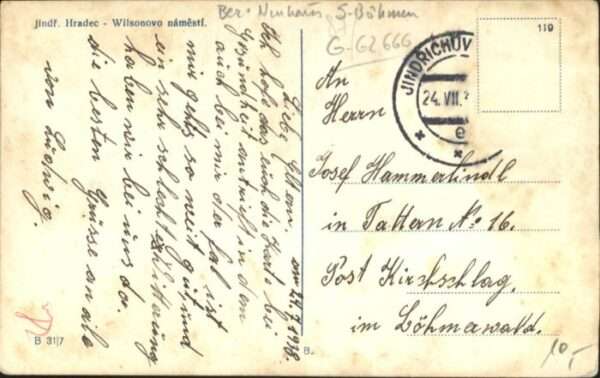 Ber. Neuhaus, S-Böhmen
G-G2666
Jindř. Hradec - Wilsonovo náměstí.
119
JINDŘICHŮV
24. VII.
e
An
Herrn
Josef Hammerlindl
in Tattern No 16.
Post Kirchschlag,
im Böhmerwald.
am 21.7.1938.
Liebe Eltern.
Ich hofe das euch die Karte bei
Gesundheit antrieft in dem
auch bei mir der fal ist
mir gehts so weit gut und
ein sehr schlechte
haben wir bei uns da.
die besten Grüsse an ale
von Ludwig.
B 31/7
B.
10,-